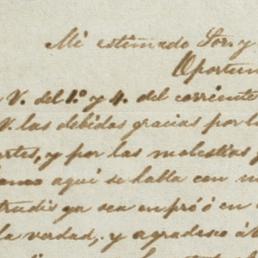 Mi estimado Sor. y
Oportun
V. del 1.º y 4. del corriente
V. las debidas gracias por l
rtes, y por las molestias
omo aquí se halla con m
trudis ya sea en pró ó en
la verdad, y agradesco á